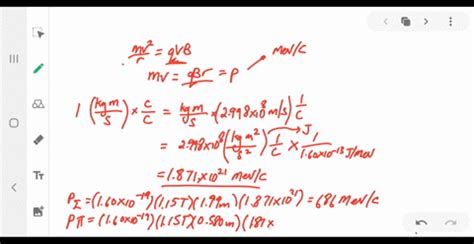 mv²/r = qVB
mv = qBr = p → MeV/c
1 (kg m/s) × c/c = kg m/s × (2.998×10⁸ m/s) 1/c
= 2.998×10⁸ (kg m²/s²) 1/c × 1/1.60×10⁻¹³ J/MeV
J
= 1.871×10²¹ MeV/c
P_Σ = (1.60×10⁻¹⁹)(1.15T)(1.99m)(1.871×10²¹) = 686 MeV/c
Pπ = (1.60×10⁻¹⁹)(1.15T)(0.580m)(187×